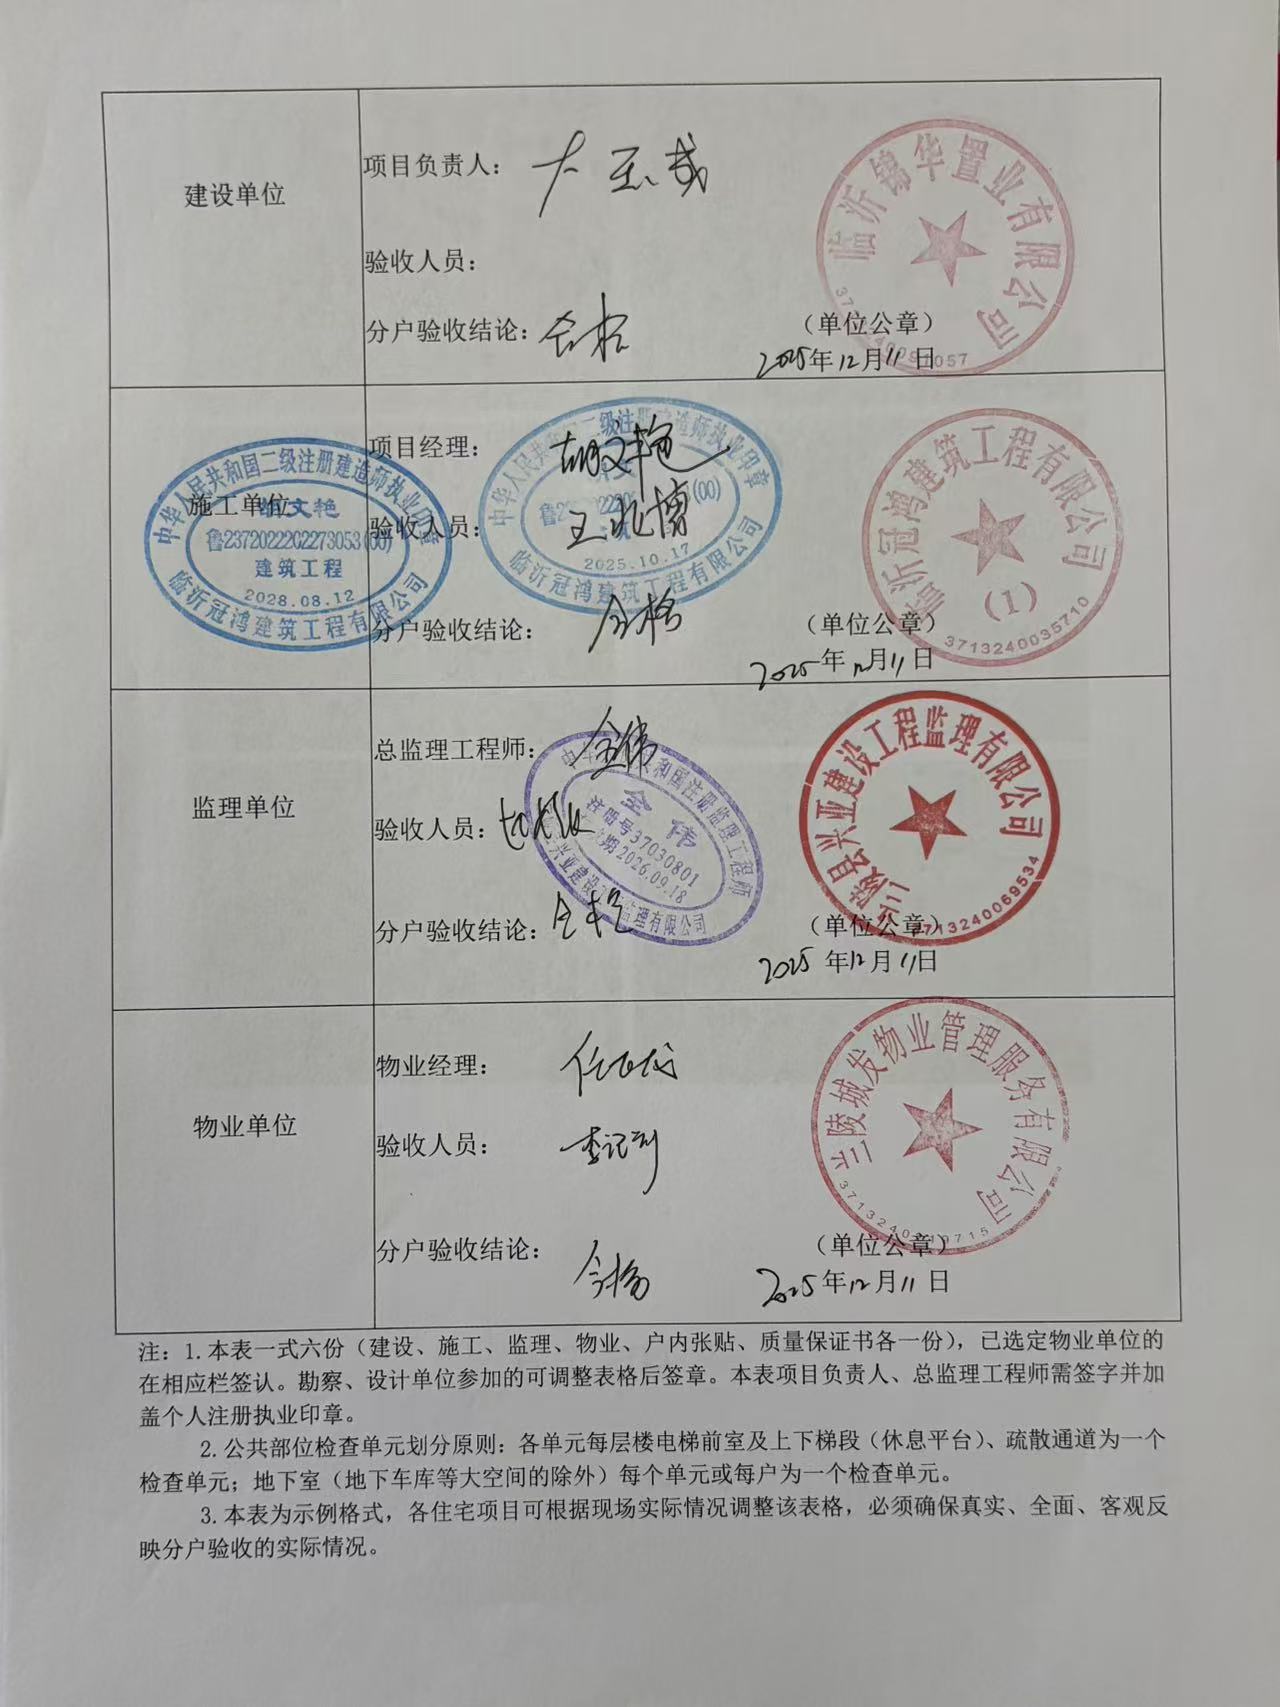 建设单位
项目负责人：
验收人员：
分户验收结论：合格
（单位公章）
2025年12月11日
临沂锦华置业有限公司
施工单位
项目经理：胡文艳
验收人员：王兆博
分户验收结论：合格
（单位公章）
2025年12月11日
中华人民共和国二级注册建造师执业印章
胡文艳
鲁2372022202273053(00)
建筑工程
2028.08.12
临沂冠鸿建筑工程有限公司
中华人民共 二级注册建造师执业印章
2025.10.17
临沂冠鸿建筑工程有限公司
临沂冠鸿建筑工程有限公司
(1)
3713240035710
监理单位
总监理工程师：全伟
验收人员：
分户验收结论：合格
（单位公章）
2025年12月11日
中华 共和国注册监理工程师
全伟
注册号37030801
期2026.09.18
兴亚建设 监理有限公司
兰陵县兴亚建设工程监理有限公司
3713240069534
物业单位
物业经理：
验收人员：
分户验收结论：合格
（单位公章）
2025年12月11日
兰陵城发物业管理服务有限公司
注：1.本表一式六份（建设、施工、监理、物业、户内张贴、质量保证书各一份），已选定物业单位的
在相应栏签认。勘察、设计单位参加的可调整表格后签章。本表项目负责人、总监理工程师需签字并加
盖个人注册执业印章。
2.公共部位检查单元划分原则：各单元每层楼电梯前室及上下梯段（休息平台）、疏散通道为一个
检查单元；地下室（地下车库等大空间的除外）每个单元或每户为一个检查单元。
3.本表为示例格式，各住宅项目可根据现场实际情况调整该表格，必须确保真实、全面、客观反
映分户验收的实际情况。